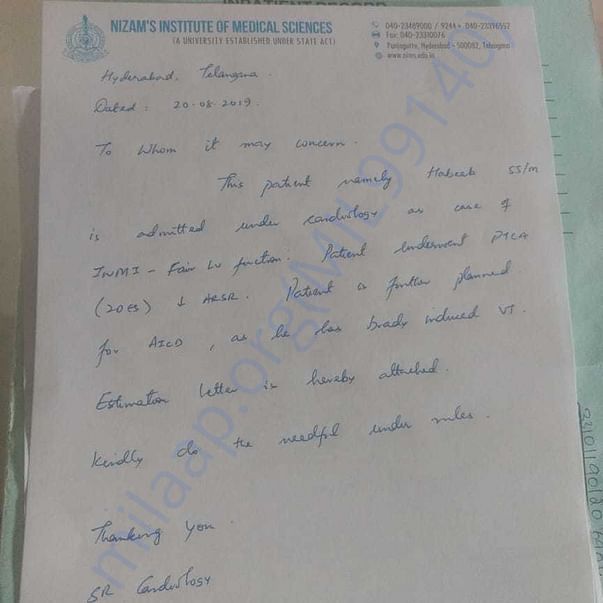 INPATIENT RECORD
NIZAM'S INSTITUTE OF MEDICAL SCIENCES
(A UNIVERSITY ESTABLISHED UNDER STATE ACT)
040-23489000 / 9244 • 040-23396552
Fax: 040-23310076
Punjagutta, Hyderabad - 500082, Telangana
www.nims.edu.in
Hyderabad, Telangna.
Dated: 20-08-2019.
To Whom it may concern.
This patient namely Habeeb 55/m
is admitted under cardiology as case of
IWMI - Fair LV function. Patient underwent PTCA
(2DES) ↓ ARSR. Patient is further planned
for AICD, as he has brady induced VT.
Estimation letter is hereby attached.
Kindly do the needful under rules.
Thanking You
SR Cardiology
milaap.org(MIL99140)